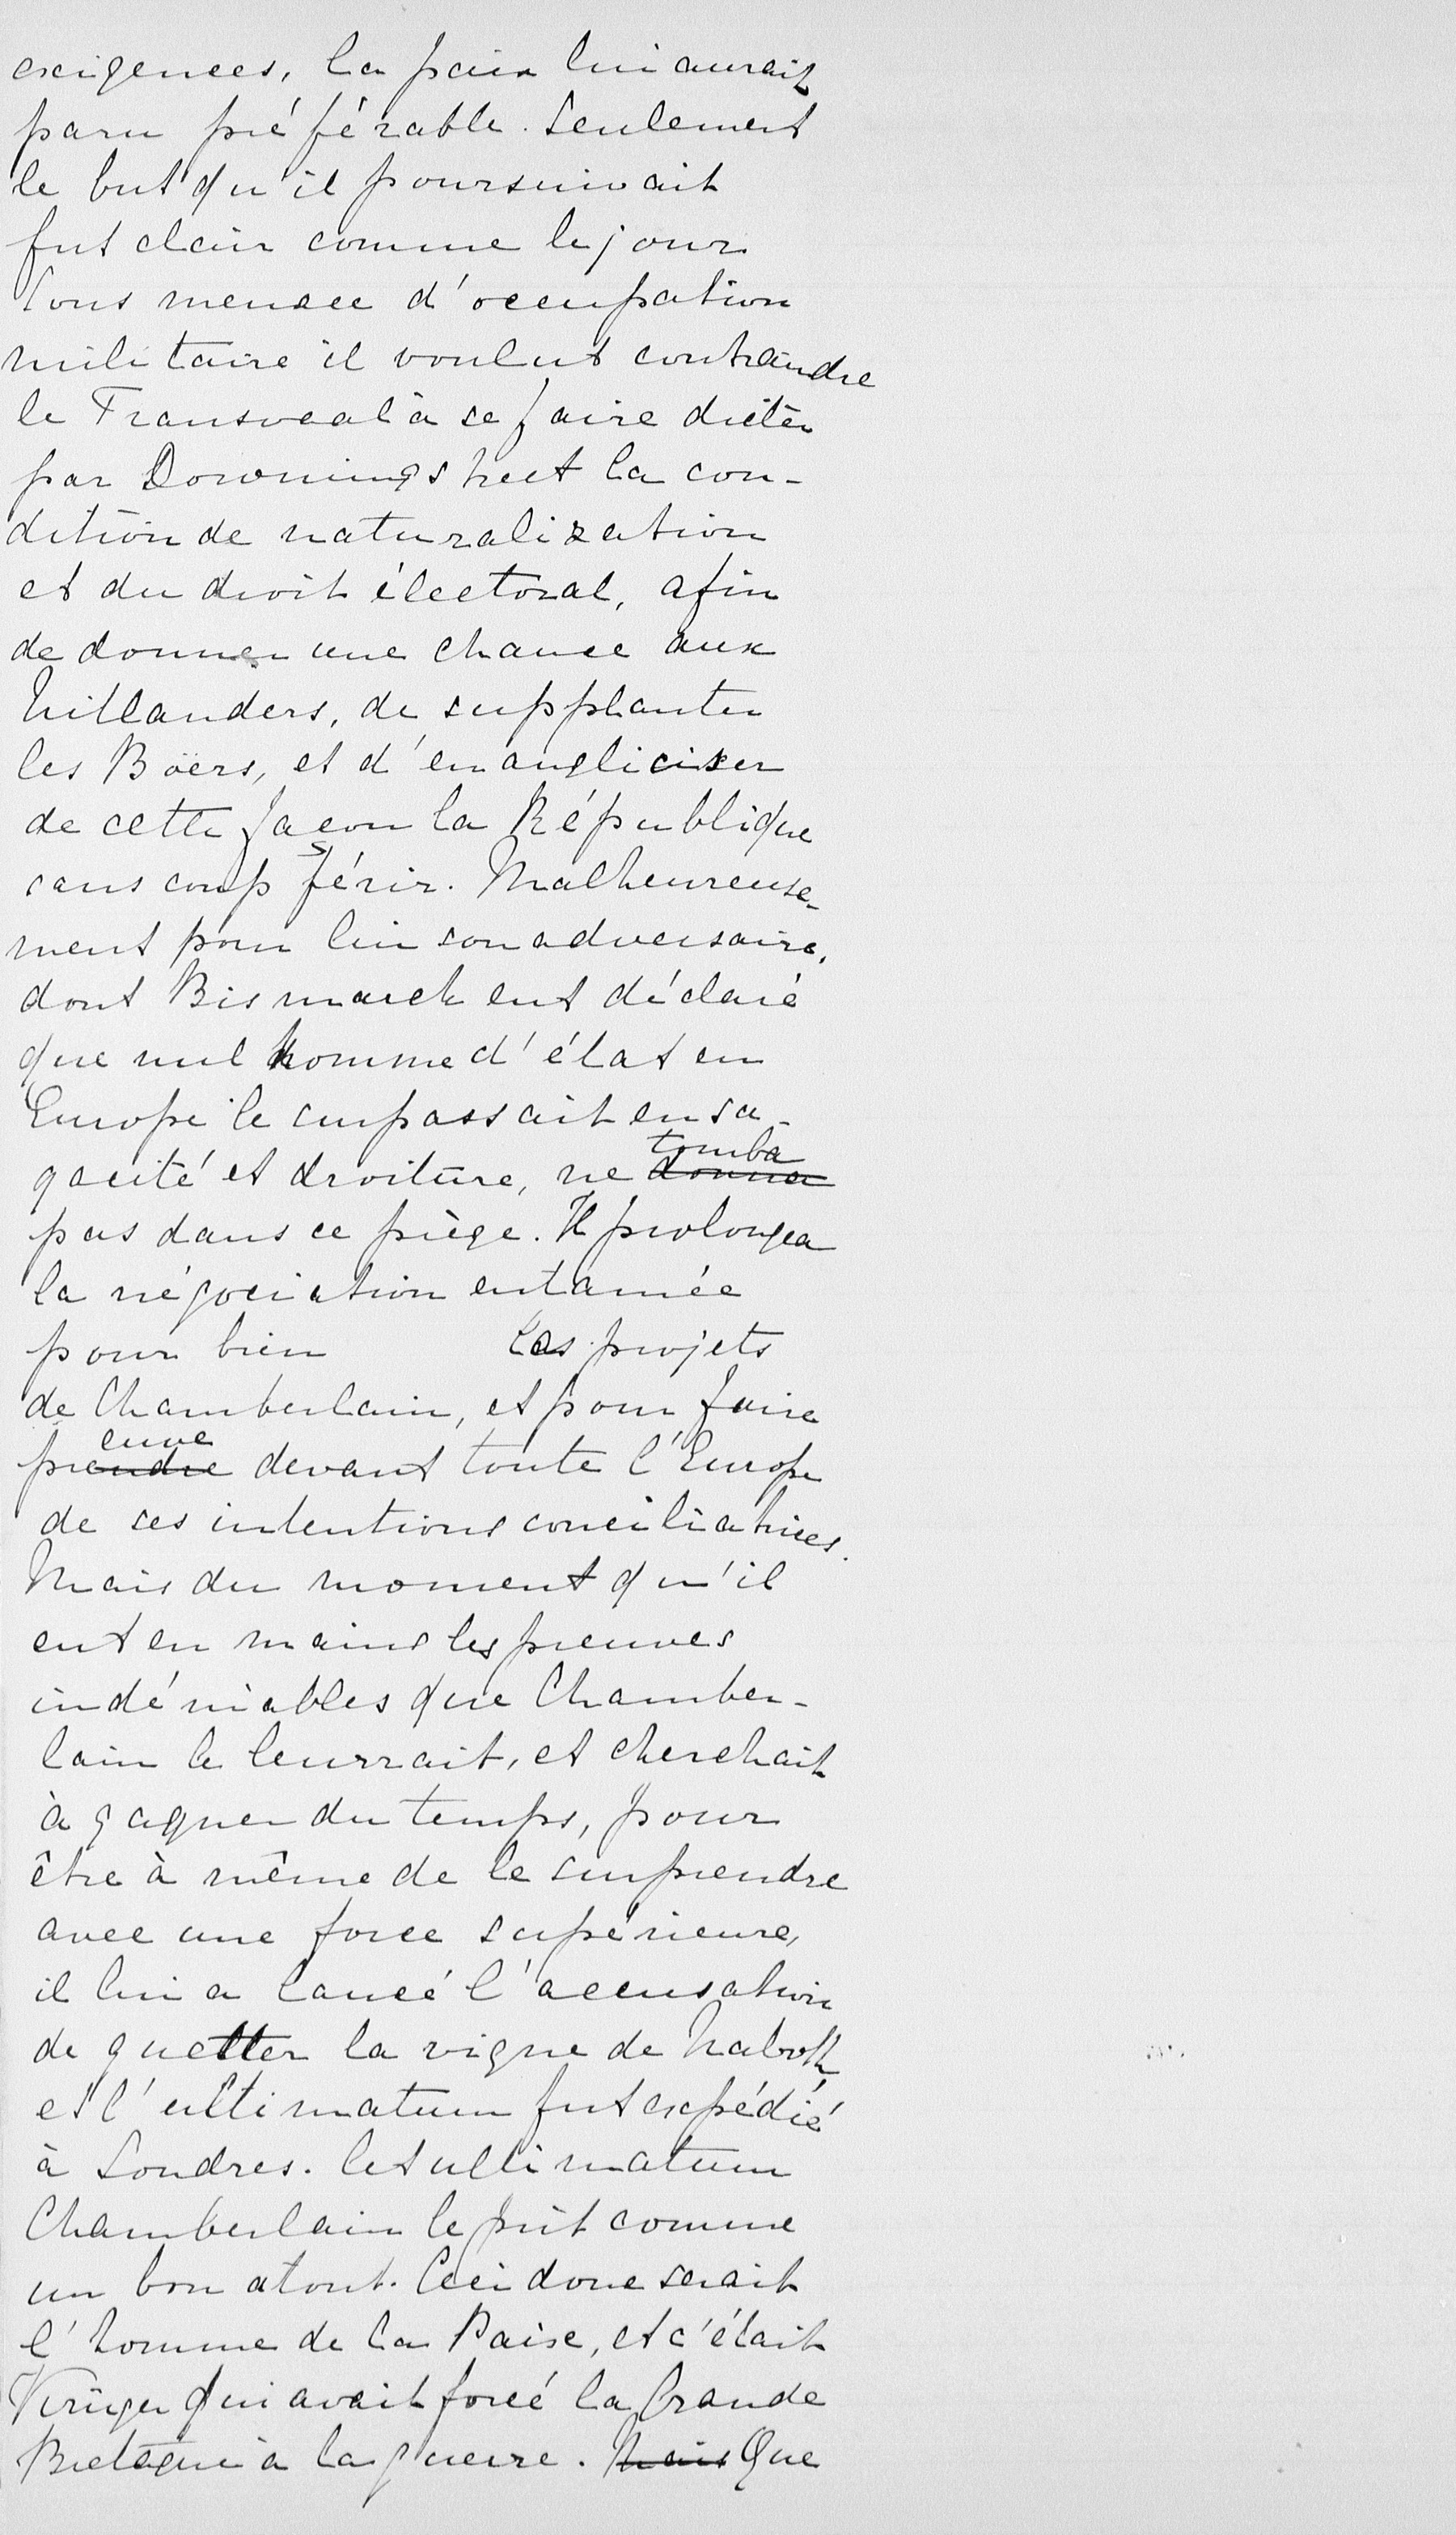 exigences, la paix lui aurait
paru préférable. Seulement
le but qu'il poursuivait
fut clair comme le jour
Sous menace d'occupation
militaire il voulut contraindre
le Transvaal à se faire dicter
par Downingstreet la con-
dition de naturalization
et du droit électoral, afin
de donner une chance aux
Uitlanders, de supplanter
les Böers, et d'en angliciser
de cette façon la République
sans coup férir. Malheureuse-
ment pour lui son adversaire,
dont Bismarck eut déclaré
que nul homme d'état en
Europe le surpassait en sa-
gacité et droiture, ne donna tomba
pas dans ce piège. Il prolongea
la négociation entamée
pour bien Les projets
de Chamberlain, et pour faire
prendre euve devant toute l'Europe
de ses intentions conciliatrices.
Mais du moment qu'il
eut en mains les preuves
indéniables que Chamber-
lain le leurrait, et cherchait
à gagner du temps, pour
être à même de le surprendre
avec une force supérieure,
il lui a lancé l'accusation
de guetter la vigne de Naboth
et l'ultimatum fut expédié
à Londres. Cet ultimatum
Chamberlain le prit comme
un bon atout. Ceci donc serait
l'homme de la Paix, et c'était
Krüger qui avait forcé la Grande
Bretagne à la guerre. Mais Que